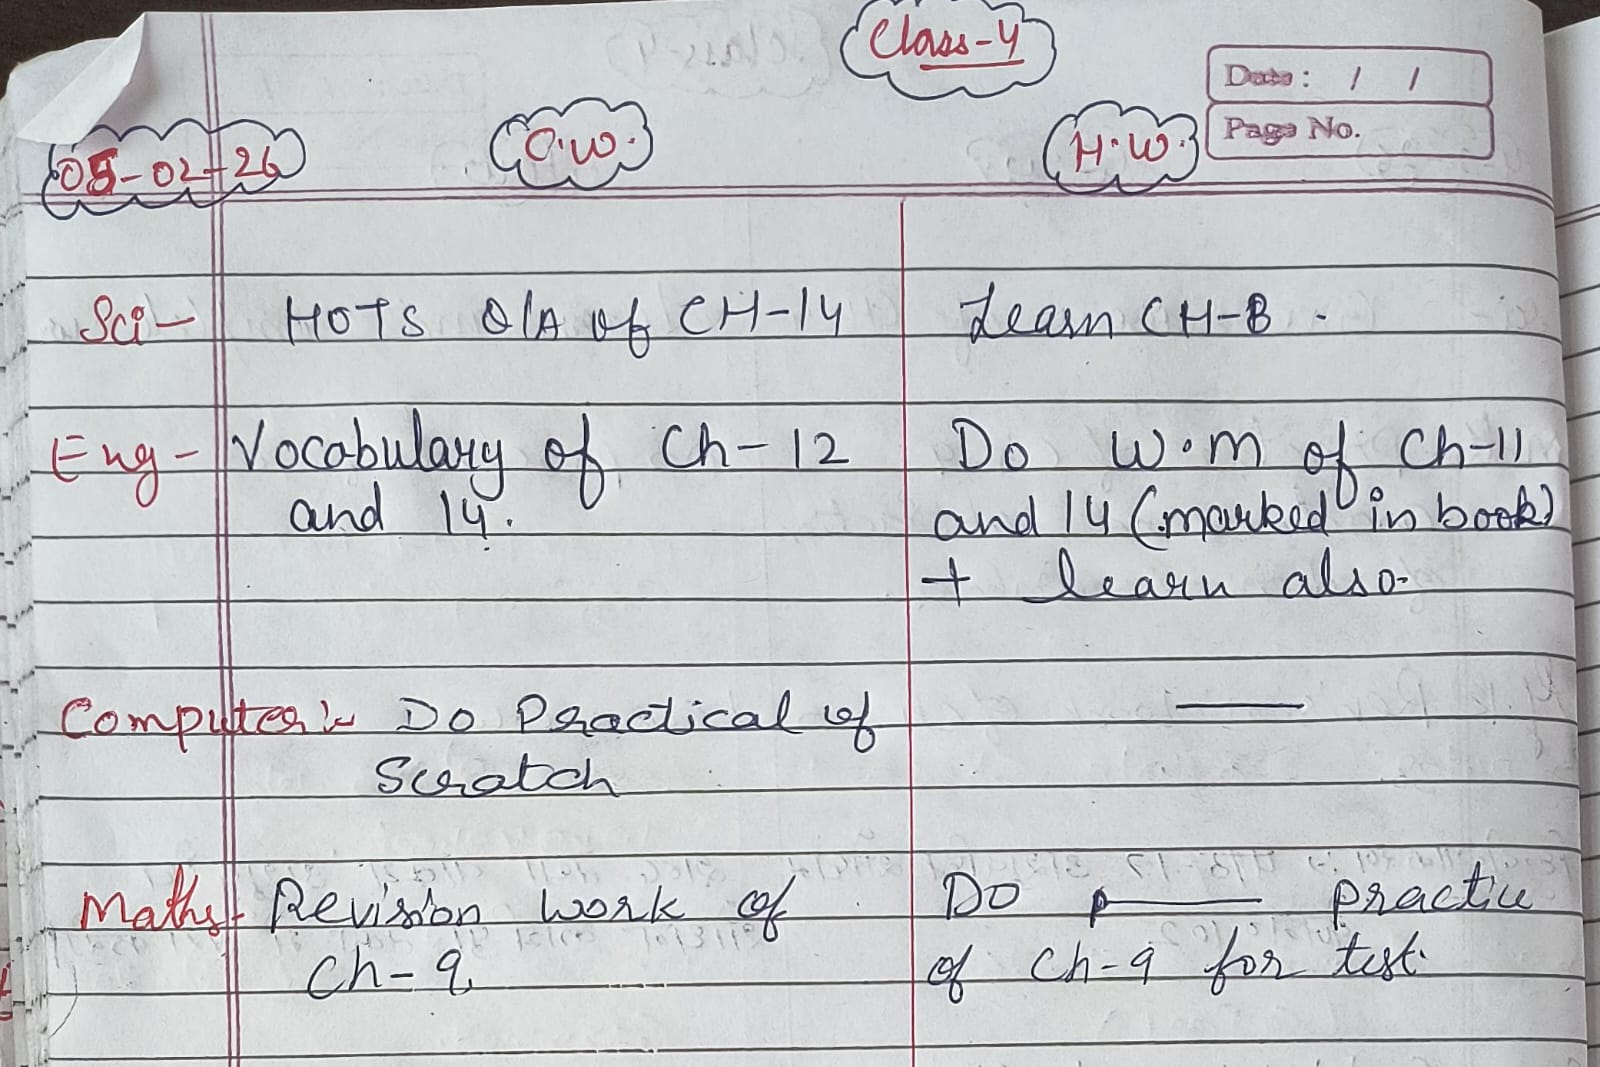 Class-4
Date: / /
Page No.
05-02-26
C.W.
H.W.
Sci- HOTS Q/A of CH-14
Learn CH-8.
Eng- Vocabulary of Ch-12
and 14.
Do W.M of Ch-11
and 14 (marked in book)
+ learn also-
Computer:- Do Practical of
Scratch
Maths- Revision work of
Ch-9
Do practice
of Ch-9 for test.